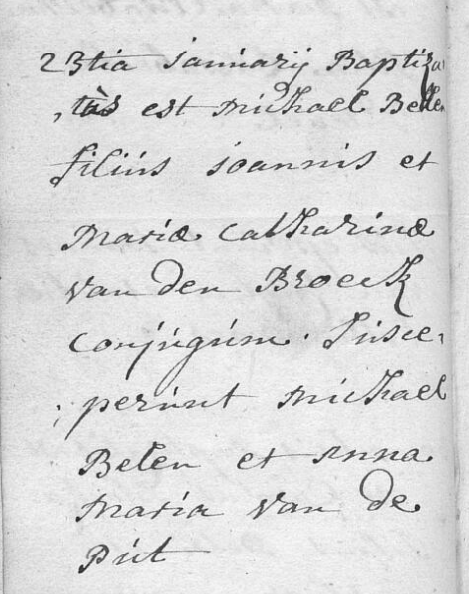 23tia januarij Baptiza
,tùs est michael Belen
filiùs joannis et
Mariæ Catharinæ
van den Broeck
Conjùgùm. Susce,
,perùnt michael
Belen et Anna
Maria van de
Pùt